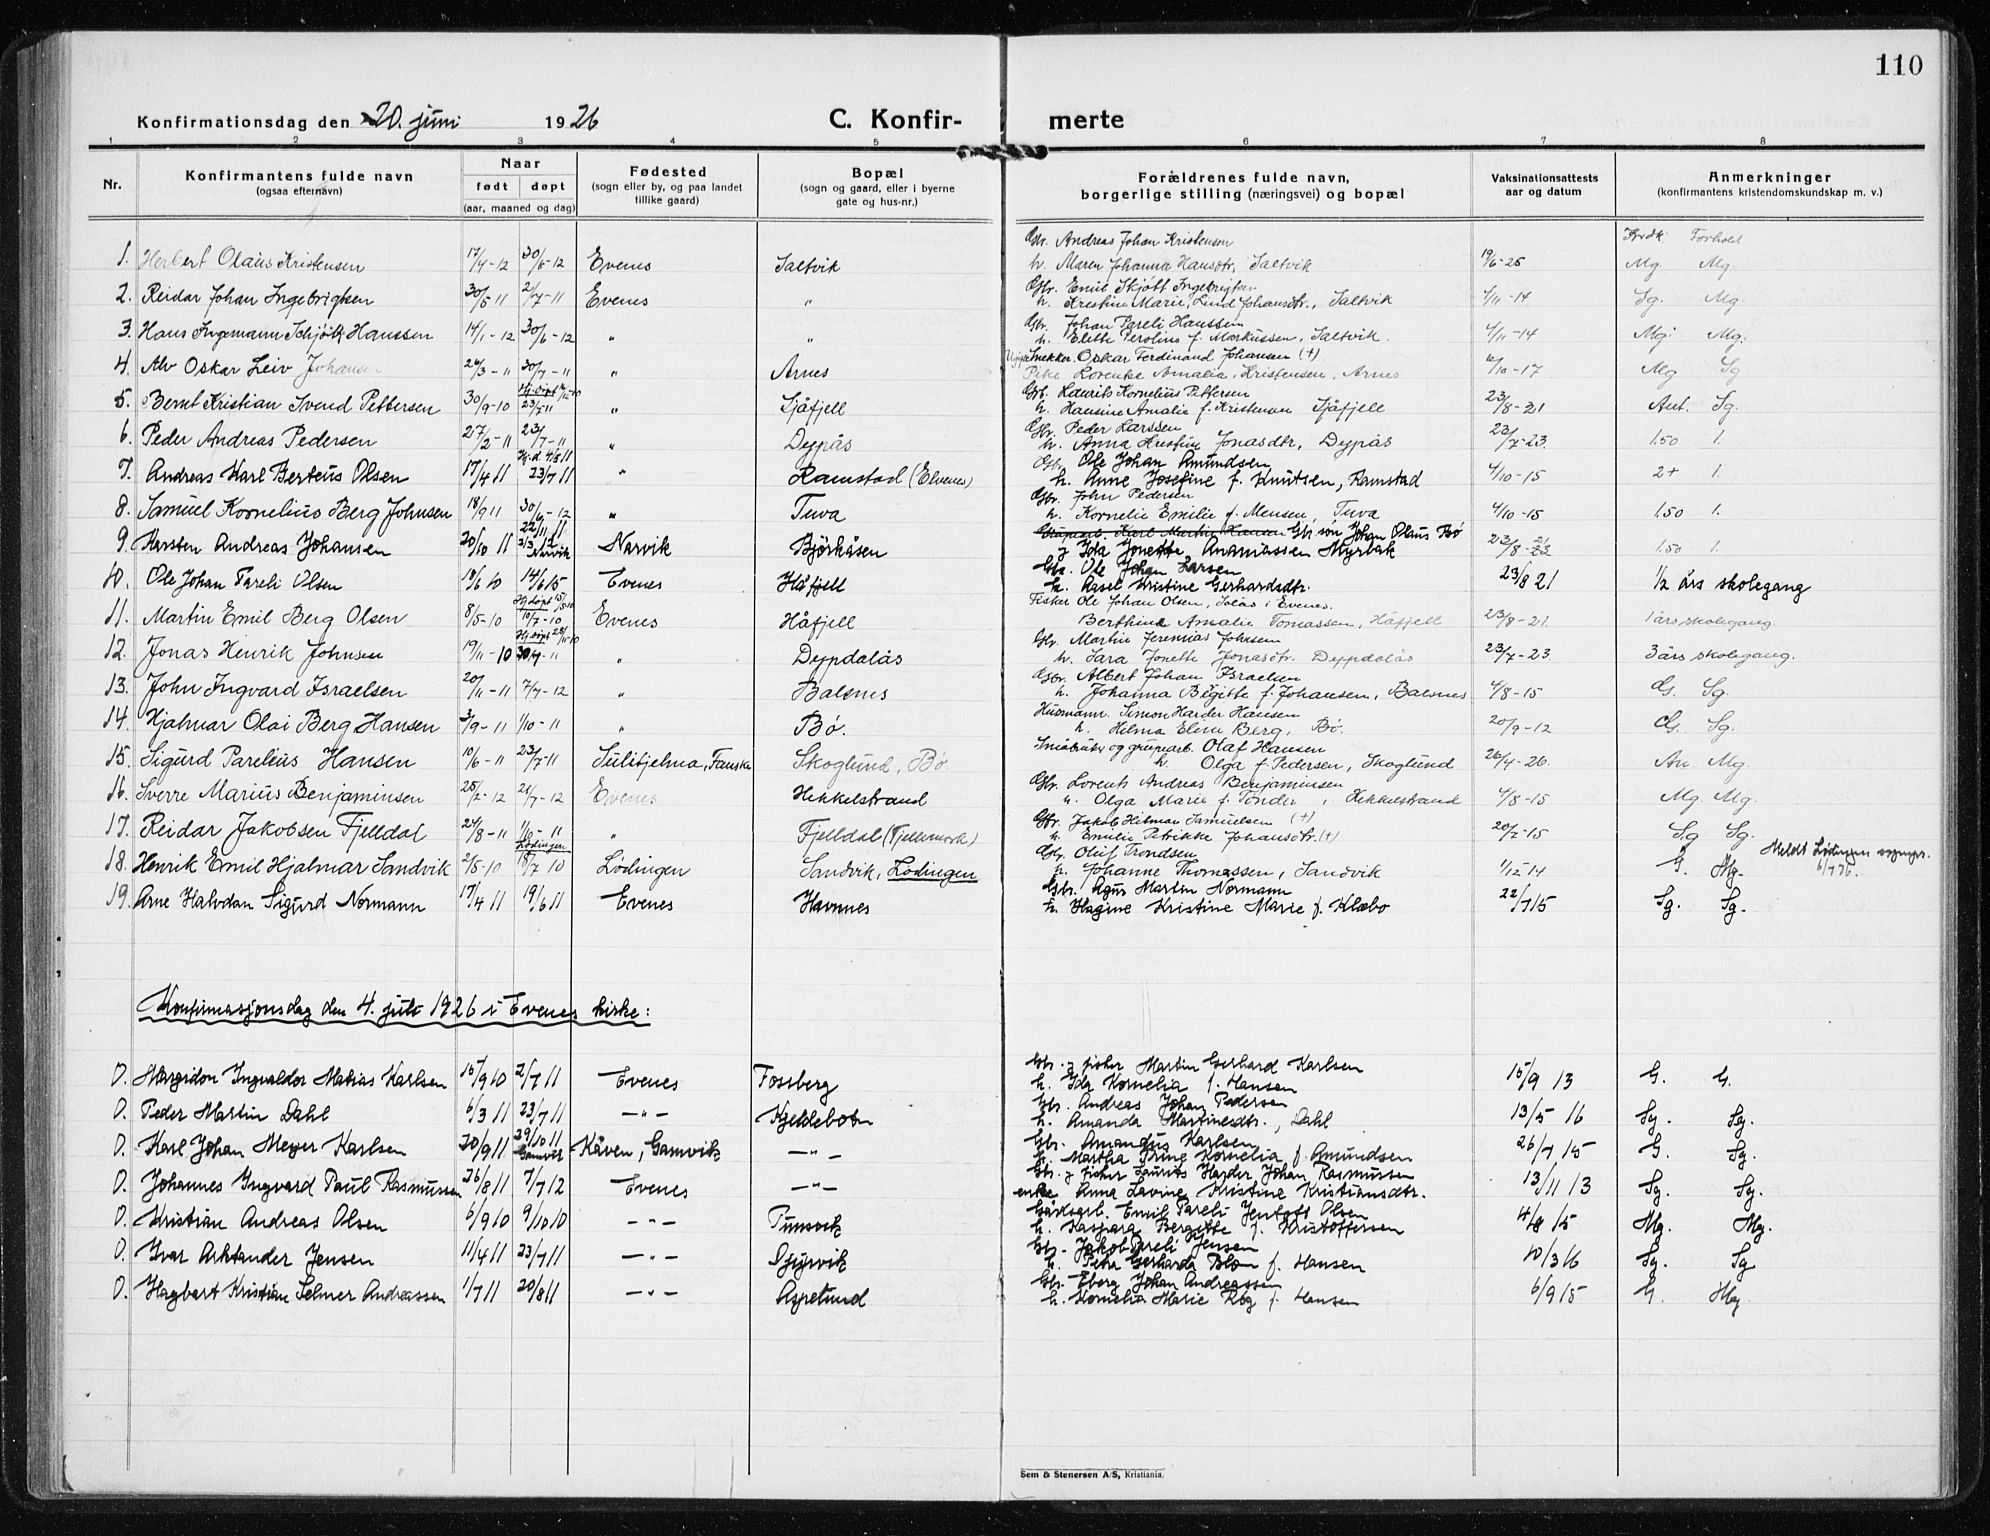 110
Konfirmationsdag den 20. juni 1926 C. Konfir- merte
1 2 3 4 5 6 7 8
Nr. Konfirmantens fulde navn (ogsaa efternavn) Naar født døpt (aar, maaned og dag) Fødested (sogn eller by, og paa landet tillike gaard) Bopæl (sogn og gaard, eller i byerne gate og hus-nr.) Forældrenes fulde navn, borgerlige stilling (næringsvei) og bopæl Vaksinationsattests aar og datum Anmerkninger (konfirmantens kristendomskundskap m. v.)
Krdk. Forhold
1. Herbert Olaus Kristensen 17/4-12 30/6-12 Evenes Saltvik Gbr. Andreas Johan Kristensen
h. Maren Johanna Hansdtr, Saltvik 19/6-25 Mg. Mg.
2. Reidar Johan Ingebrigtsen 30/5 11 2/7-11 Evenes " Gbr. Emil Skjött Ingebrigtsen
h. Kristine Marie Lund Johansdtr., Saltvik 4/11-14 Sg. Mg.
3. Hans Ingemann Schjött Hanssen 14/1-12 30/6-12 " " Gbr. Johan Pareli Hanssen
h. Elette Peroline f. Markussen, Saltvik. 4/11-14 Mg. Mg.
4. Alv Oskar Leiv Johansen 26/3-11 30/7-11 " Arnes Ugift Snekker Oskar Ferdinand Johansen (+)
Pike Lorentse Amalia Kristensen, Arnes /10-17 Mg Sg
5. Bernt Kristian Svend Pettersen 30/9-10 Hj.døpt /12-10 23/7-11 " Sjåfjell Gbr. Laurits Kornelius Pettersen
h. Hansine Amalie f. Kristensen Sjåfjell 23/8-21 Ant. Sg.
6. Peder Andreas Pedersen 27/2-11 23/7-11 " Dypås Gbr. Peder Larssen
h. Anna Kristine Jonasdtr, Dypås 23/7-23. 1.50 1.
7. Andreas Karl Berteus Olsen 17/4 11 Hj.d. 4/8 11 23/7 11 " Ramstad (Elvenes) Gbr. Ole Johan Amundsen
h. Anne Josefine f. Knutsen, Ramstad 4/10-15 2+ 1.
8. Samuel Kornelius Berg Johnsen 18/9 11 30/6-12 " Tuva Gbr. John Pedersen
h. Kornelie Emilie f. Mensen, Tuva 4/10-15 1.50 1.
9. Karsten Andreas Johansen 20/10 11 22/11 11 2/3 12 Narvik Narvik Bjørkåsen Grupearb. Karl Martin Hansen Gbr søn Johan Olaus Bø
g Ida Jonette Ananiassen Myrbak 23/8-22 21 1.50 1.
10. Ole Johan Pareli Olsen 19/6 10 14/6 15 Evenes Håfjell Gbr. Ole Johan Larsen
h. Aasel Kristine Gerhardsdtr. 23/8 21 1/2 års skolegang
11. Martin Emil Berg Olsen 8/5-10 Hj.døpt 15/5-10 10/7-10 Evenes Håfjell Fisker Ole Johan Olsen, Solås i Evenes.
Berthine Amalie Tomassen, Håfjell 23/8-21. 1 års skolegang
12. Jonas Henrik Johnsen 19/11-10 Hj.døpt 28/11-10 30/7-11 " Deypdalås Gbr. Martin Jeremias Johnsen
h. Sara Jonette Jonasdtr. Deypdalås 23/7-23. 3 års skolegang.
13. John Ingvard Israelsen 20/11-11 7/7-12 " Balsnes Gbr. Albert Johan Israelsen
h. Johanna Birgitte f. Johansen, Balsnes 4/8-15 G. Sg.
14. Hjalmar Olai Berg Hansen 3/9-11 1/10-11 " Bø. Husmann. Simon Harder Hansen
h. Helma Eline Berg, Bø. 20/9-12 G. Sg.
15. Sigurd Parelius Hansen 10/6-11 23/7-11 Sulitjelma, Fauske Skoglund, Bø. Småbruker og grupearb. Olaf Hansen
h. Olga f. Pedersen, Skoglund 26/4-26. An Mg.
16. Sverre Marius Benjaminsen 25/2-12 21/7-12 Evenes Hekkelstrand Gbr. Lorents Andreas Benjaminsen
h. Olga Marie f. Tönder, Hekkelstrand 4/8-15 Mg. Mg.
17. Reidar Jakobsen Fjelldal 24/8-11 1/10-11 " Fjelldal (Fjellmark) Gbr. Jakob Hilmar Samuelsen (+)
h. Emilie Petrikke Johansdtr. (+) 20/7-15 Sg Sg.
18. Henrik Emil Hjalmar Sandvik 2/5-10 Lødingen 18/7 10 Lødingen Sandvik, Lødingen Gbr. Oluf Trondsen
h. Johanne Thomassen, Sandvik 1/12 14 G. Mg. Meldt Lødingen sognepr. 6/7 26.
19. Arne Halvdan Sigurd Normann 17/4 11 19/6 11 Evenes Havnnes Gbr. Agus Martin Normann
h. Hagine Kristine Marie f. Klæbo 22/7 15 Sg. Sg.
Konfirmasjonsdag den 4. juli 1926 i Evenes kirke:
0. Margidon Ingvaldor Matias Karlsen 15/9 10 2/7 11 Evenes Fossberg Gbr. g fisker Martin Gerhard Karlsen
h. Ida Kornelia f. Hansen 15/9 13 G. G.
0. Peder Martin Dahl 6/3 11 23/7 11 —"— Kjeldebotn Gbr. Andreas Johan Pedersen
h. Amanda Martinesdtr., Dahl 13/5 16 Sg. Sg.
0. Karl Johan Meyer Karlsen 20/9 11 29/10 11 Gamvik Kåven, Gamvik —"— Gbr. Amandus Karlsen
h. Martha Trine Kornelia f. Amundsen 26/7 15 G. Sg.
0. Johannes Ingvard Paul Rasmussen 26/8 11 7/7 12 Evenes —"— Gbr. g fisker Laurits Harder Johan Rasmussen
enke Anna Lavine Kristine Kristiansdtr. 13/11 13 Sg. Sg.
0. Kristian Andreas Olsen 6/9 10 9/10 10 —"— Tunsvik Gårdsgrb. Emil Pareli Jentoft Olsen
h. Kaspara Bergitte f. Kristoffersen 4/8 15 Mg. Mg.
0. Ivar Arktander Jensen 11/4 11 23/7 11 —"— Djupvik Gbr. Jakob Pareli Jensen
h. Petra Gerharda Blom f. Hansen 10/3 16 Sg. Sg
0. Hagbart Kristian Selmer Andreassen 1/7 11 20/8 11 —"— Gbr. Eberg Johan Andreassen
h. Kornelia Marie f. Hansen 6/9 15 G. Mg
Sem & Stenersen A/S, Kristiania.